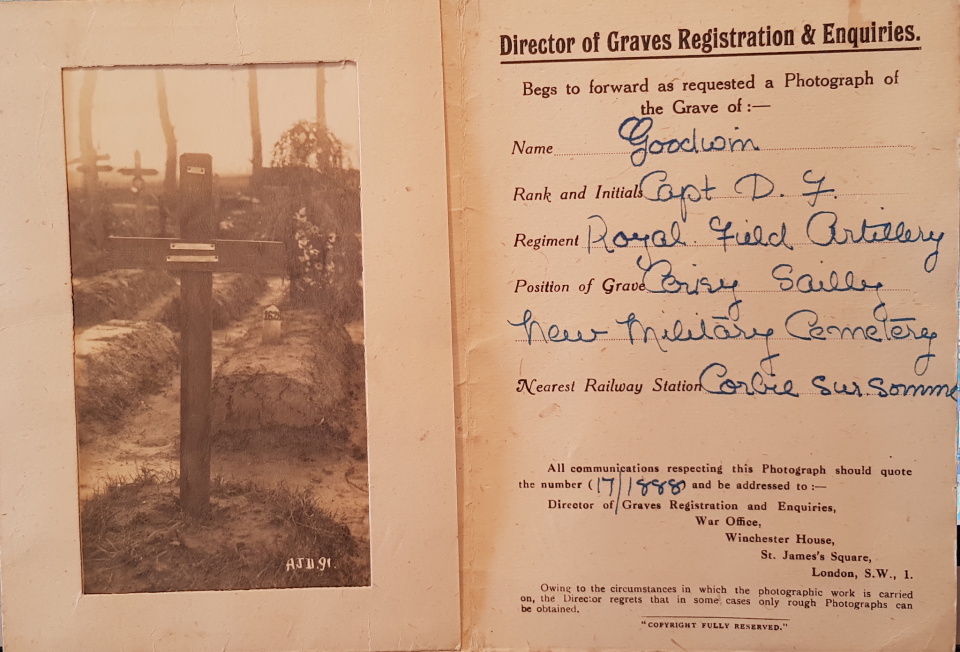 A.J.D.91.
Director of Graves Registration & Enquiries.
Begs to forward as requested a Photograph of
the Grave of :—
Name Goodwin
Rank and Initials Capt D. F.
Regiment Royal Field Artillery
Position of Grave Corisy Sailly
New Military Cemetery
Nearest Railway Station Corbie Sur Somme
All communications respecting this Photograph should quote
the number (17/1888) and be addressed to :—
Director of Graves Registration and Enquiries,
War Office,
Winchester House,
St. James's Square,
London, S.W., 1.
Owing to the circumstances in which the photographic work is carried
on, the Director regrets that in some cases only rough Photographs can
be obtained.
"COPYRIGHT FULLY RESERVED."